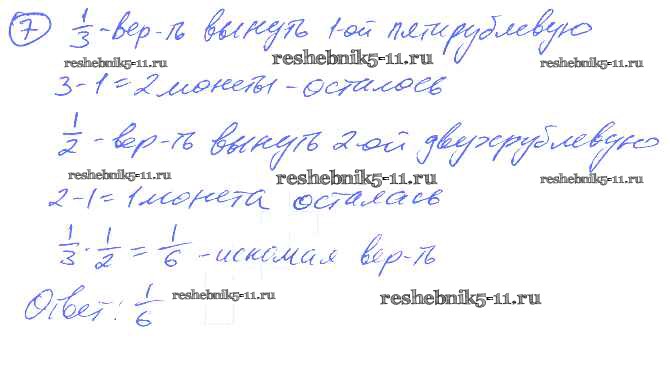 7 1/3 - вер-ть вынуть 1-ой пятирублевую
reshebnik5-11.ru reshebnik5-11.ru reshebnik5-11.ru
3-1=2 монеты - осталось
1/2 - вер-ть вынуть 2-ой двухрублевую
reshebnik5-11.ru reshebnik5-11.ru reshebnik5-11.ru
2-1=1 монета осталась
1/3 · 1/2 = 1/6 - искомая вер-ть
Ответ: 1/6
reshebnik5-11.ru reshebnik5-11.ru